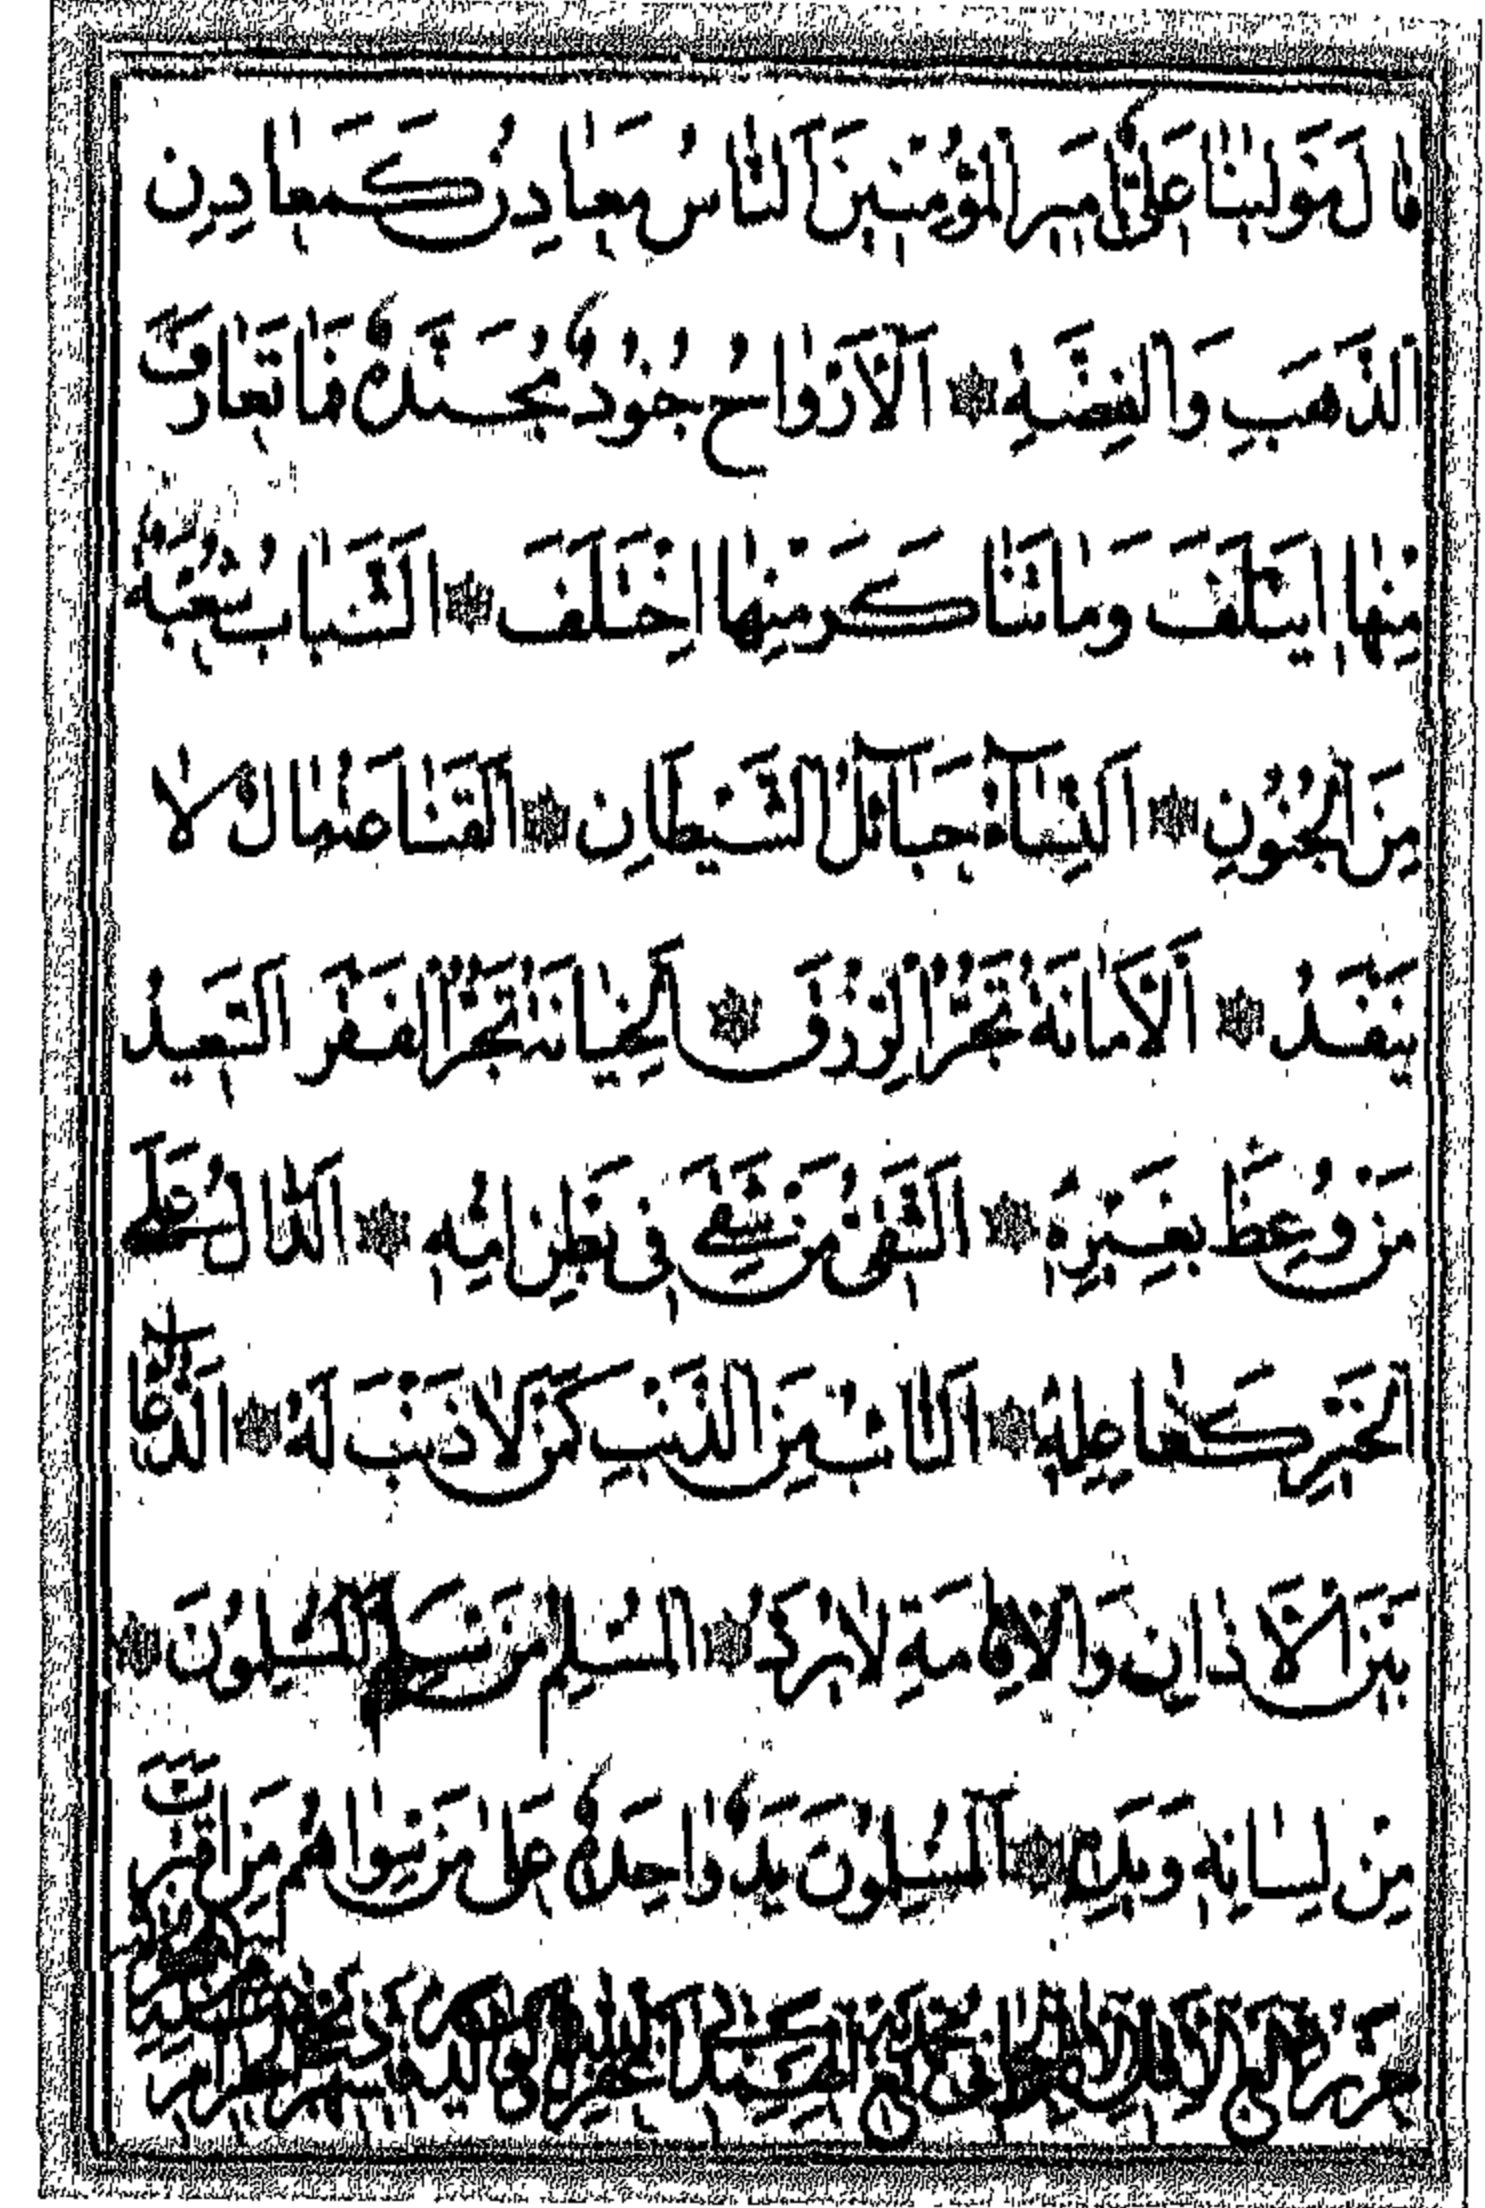 قَالَ مَوْلٰينٰا عَلِىٌّ اَمٖيرَ الْمُؤْمِنٖينَ اَلنّٰاسُ مَعٰادِنُ كَمَعٰادِنِ
الذَّهَبِ وَالْفِضَّةِ ۞ اَلْاَرْوٰاحُ جُنُودٌ مُجَنَّدَةٌ فَمٰا تَعٰارَفَ
مِنْهٰا اِيتَلَفَ وَمٰا تَنٰاكَرَ مِنْهٰا اِخْتَلَفَ ۞ اَلشَّبٰابُ شُعْبَةٌ
مِنَ الْجُنُونِ ۞ اَلنِّسَآءُ حَبَآئِلُ الشَّيْطَانِ ۞ اَلْقَنٰاعَةُ مٰالٌ لٰا
يَنْفَدُ ۞ اَلْاَمٰانَةُ تَجُرُّ الرِّزْقَ ۞ اَلْخِيٰانَةُ تَجُرُّ الْفَقْرَ اَلسَّعٖيدُ
مَنْ وُعِظَ بِغَيْرِهٖ ۞ اَلشَّقِىُّ مَنْ شَقِىَ فٖى بَطْنِ اُمِّهٖ ۞ اَلدّٰالُّ عَلَى
الْخَيْرِ كَفٰاعِلِهٖ ۞ اَلتّٰائِبُ مِنَ الذَّنْبِ كَمَنْ لٰا ذَنْبَ لَهُ ۞ اَلدُّعَآءُ
بَيْنَ الْاَذٰانِ وَالْاِقٰامَةِ لٰا يُرَدُّ ۞ اَلْمُسْلِمُ مَنْ سَلِمَ الْمُسْلِمُونَ ۞
مِنْ لِسٰانِهٖ وَيَدِهٖ ۞ اَلْمُسْلِمُونَ يَدٌ وٰاحِدَةٌ عَلٰى مَنْ سِوٰاهُمْ مَنِ اقْتَرَبَ